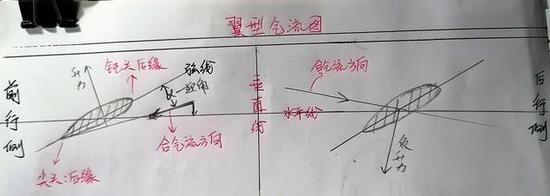 翼型气流图
前行侧
升力
钝头:后缘
弦线
迎角
合气流方向
尖头:后缘
垂直线
合气流方向
水平线
负升力
后行侧